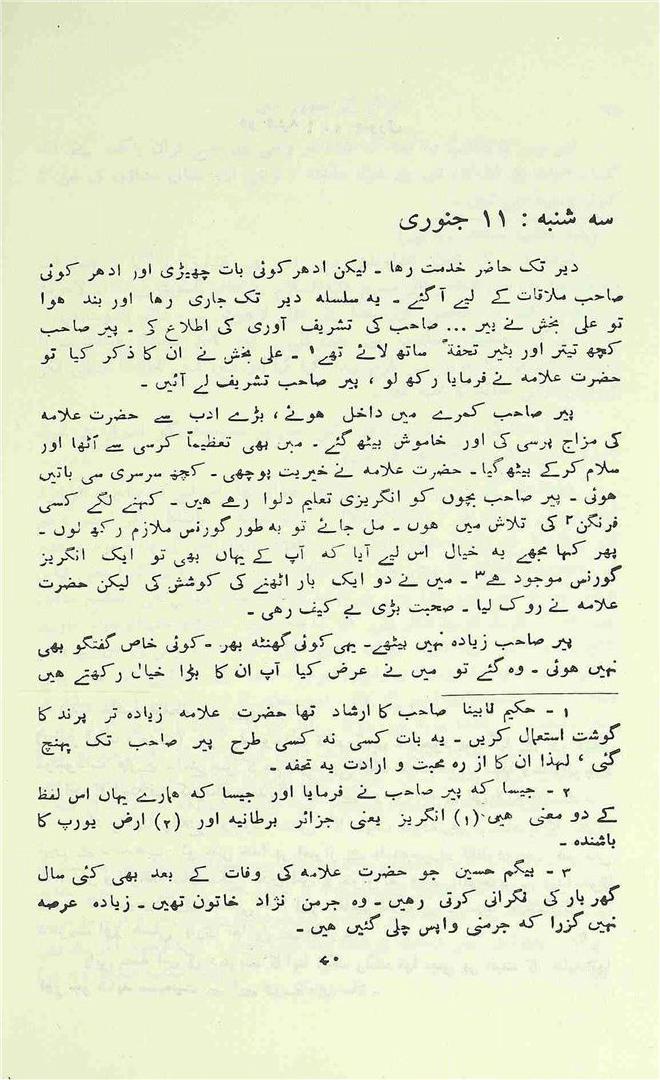 سه شنبه : ۱۱ جنوری
دیر تک حاضر خدمت رها ۔ لیکن ادھر کوئی بات چھیڑی اور ادھر کوئی
صاحب ملاقات کے لیے آ گئے ۔ یه سلسله دیر تک جاری رها اور بند هوا
تو علی بخش نے پیر ... صاحب کی تشریف آوری کی اطلاع کی ۔ پیر صاحب
کچھ تیتر اور بٹیر تحفةً ساتھ لائے تھے۱ ۔ علی بخش نے ان کا ذکر کیا تو
حضرت علامه نے فرمایا رکھ لو ، پیر صاحب تشریف لے آئیں ۔
پیر صاحب کمرے میں داخل هوئے ، بڑے ادب سے حضرت علامه
کی مزاج پرسی کی اور خاموش بیٹھ گئے ۔ میں بھی تعظیماً کرسی سے اٹھا اور
سلام کرکے بیٹھ گیا ۔ حضرت علامه نے خیریت پوچھی ۔ کچھ سرسری سی باتیں
هوئی ۔ پیر صاحب بچوں کو انگریزی تعلیم دلوا رهے هیں ۔ کہنے لگے کسی
فرنگن۲ کی تلاش میں هوں ۔ مل جائے تو به طور گورنس ملازم رکھ لوں ۔
پھر کہا مجھے یه خیال اس لیے آیا که آپ کے یہاں بھی تو ایک انگریز
گورنس موجود ہے۳ ۔ میں نے دو ایک بار اٹھنے کی کوشش کی لیکن حضرت
علامه نے روک لیا ۔ صحبت بڑی بے کیف رهی ۔
پیر صاحب زیادہ نہیں بیٹھے ۔ یہی کوئی گھنٹه بھر ۔ کوئی خاص گفتگو بھی
نہیں هوئی ۔ وہ گئے تو میں نے عرض کیا آپ ان کا بڑا خیال رکھتے هیں
۱ ۔ حکیم نابینا صاحب کا ارشاد تھا حضرت علامه زیادہ تر پرند کا
گوشت استعمال کریں ۔ یه بات کسی نه کسی طرح پیر صاحب تک پہنچ
گئی ، لہذا ان کا از رہ محبت و ارادت یه تحفه ۔
۲ ۔ جیسا که پیر صاحب نے فرمایا اور جیسا که همارے یہاں اس لفظ
کے دو معنی هیں (۱) انگریز یعنی جزائر برطانیه اور (۲) ارض یورپ کا
باشنده ۔
۳ ۔ بیگم حسین جو حضرت علامه کی وفات کے بعد بھی کئی سال
گھر بار کی نگرانی کرتی رهیں ۔ وہ جرمن نژاد خاتون تھیں ۔ زیادہ عرصه
نہیں گزرا که جرمنی واپس چلی گئیں هیں ۔